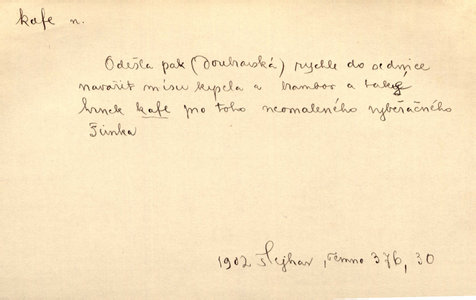 kafe n.
Odešla pak (Doubravská) rychle do sednice
navařit mísu kysela a brambor a také
hrnek kafe pro toho neomaleného vyběračného
Finka
1902 Šlejhar, Temno 376, 30